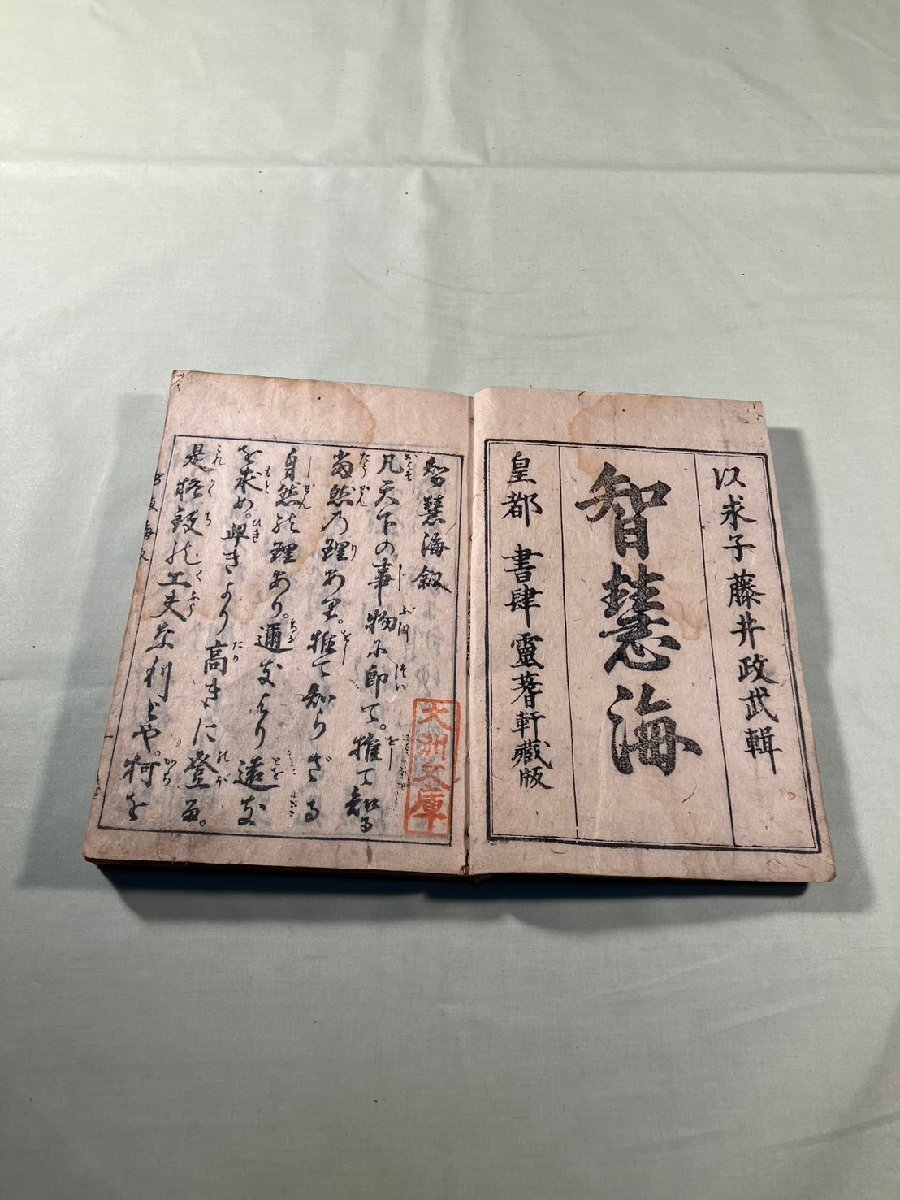 以求子藤井政武輯
智慧海
皇都 書肆 靈蓍軒藏版
智慧海叙
凡天下の事物に即て。推て知る
當然の理あり。推て知らざる
自然の理あり。邇きより遠き
を求め。卑きより高きに登る。
是格致の工夫なりとや。何を
大洲文庫